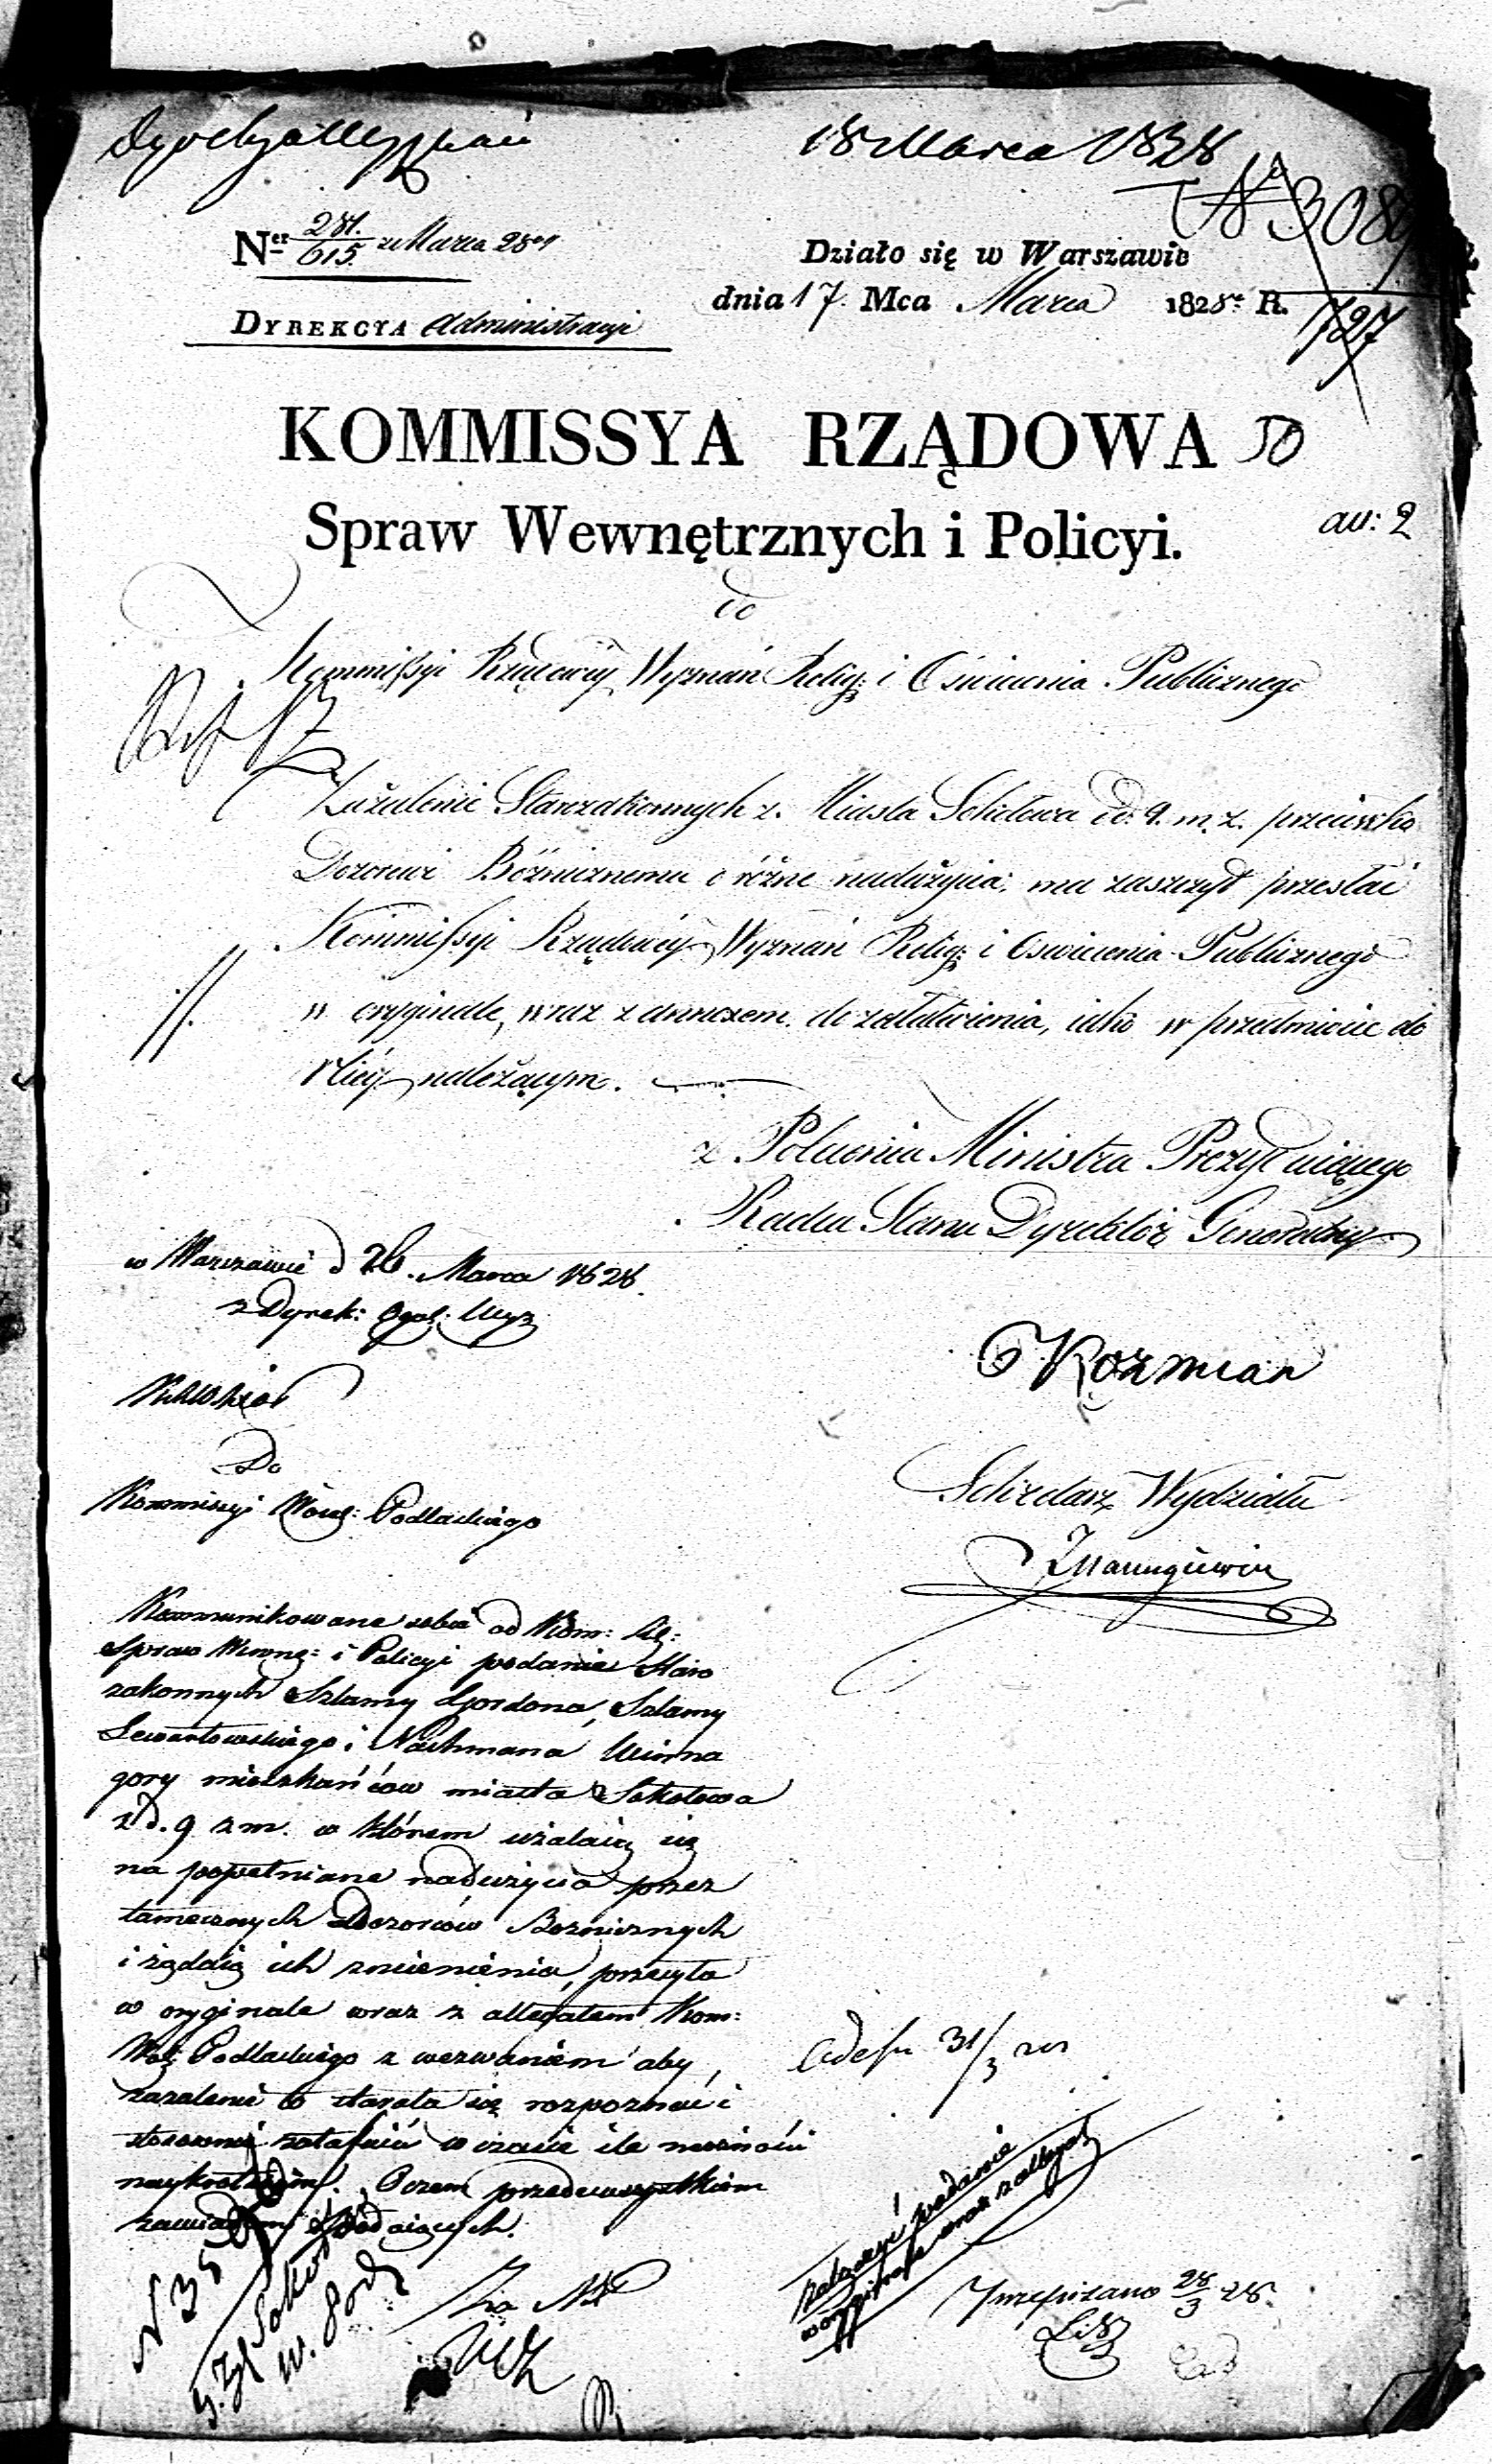 18 Marca 1828
N 3089
727
Ner 281./615. z Marca 28
DYREKCYA Administracyi
Działo się w Warszawie
dnia 17. Mca Marca 1828 R.
KOMMISSYA RZĄDOWA
50
Spraw Wewnętrznych i Policyi.
an: 2
do
Kommissyi Rządowéy Wyznań Relig: i Oświecenia Publicznego
Zażalenie Starozakonnych z Miasta Sokołowa d. 9. m. z. przeciwko
Dozorowi Bóźnicznemu o różne nadużycia, ma zaszczyt przesłać
Kommissyi Rządowéy Wyznań Relig: i Oświecenia Publicznego
w oryginale, wraz z annexem do załatwienia, iako w przedmiocie do
Niéy należącym.
z Polecenia Ministra Prezyduiącego
Radca Stanu Dyrektor Generalny
Koźmian
Sekretarz Wydziału
w Warszawie d 26. Marca 1828.
z Dyrek: Ogol: Wyz
Do
Kommissyi Woiew: Podlaskiego
Kommunikowane sobie od Kom: Rz:
Spraw Wewnę: i Policyi podanie Staro
zakonnych Szlamy Gordona, Szlamy
Lewartowskiego i Nachmana Winna
gory mieszkańców miasta Sokołowa
z d. 9 z m. w którem użalaią się
na popełniane nadużycia przez
tamecznych Dozorców Boznicznych
i żądaią ich zmienienia, przesyła
w oryginale wraz z allegatem Kom:
Wo: Podlaskiego z wezwaniem aby
zażalenie to starała się rozpoznać i
stosownie załatwić w czasie ile możności
naykrótszym. O czem przedewszystkiem
zawiadomi podaiących.
31/3
załączyć podanie
w oryginale wraz z allegatem
Przepisano 28/3 28.